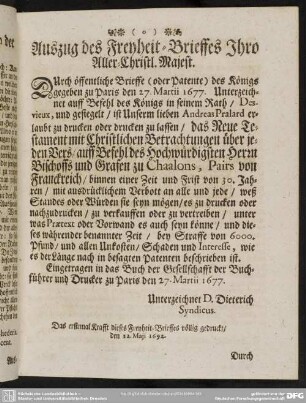 ( o )
Auszug des Freyheit-Brieffes Ihro
Aller-Christl. Majest.
Durch öffentliche Brieffe (oder Patente) des Königs
gegeben zu Paris den 27. Martii 1677. Unterzeich-
net auff Befehl des Königs in seinem Rath / Des-
vieux, und gesiegelt / ist Unserm lieben Andreas Pralard er-
laubt zu drucken oder drucken zu lassen / das Neue Te-
stament mit Christlichen Betrachtungen über je-
den Vers / auff Befehl des Hochwürdigsten Herrn
Bischoffs und Grafen zu Chaalons, Pairs von
Franckreich / binnen einer Zeit und Frist von 30. Jah-
ren / mit ausdrücklichem Verbott an alle und jede / weß
Standes oder Würden sie seyn mögen / es zu drucken oder
nachzudrucken / zu verkauffen oder zu vertreiben / unter
was Prætext oder Vorwand es auch seyn könne / und die-
ses währender benannter Zeit / bey Straffe von 6000.
Pfund / und allen Unkosten / Schaden und Interesse, wie
es der Länge nach in besagten Patenten beschrieben ist.
Eingetragen in das Buch der Gesellschafft der Buch-
führer und Drucker zu Paris den 27. Martii 1677.
Unterzeichnet D. Dieterich
Syndicus.
Das erstemal Krafft dieses Freyheit-Brieffes völlig gedruckt /
den 12. Maji 1692.
Durch